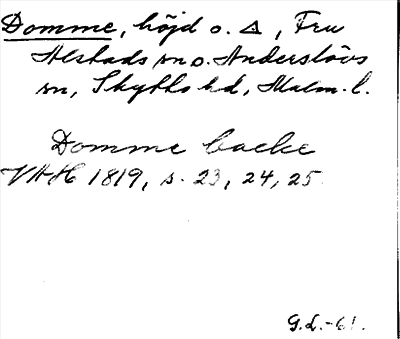 Domme, höjd o. △, Fru
Alstads sn o. Anderslövs
sn, Skytts hd, Malm. l.
Domme backe
VAH 1819, s. 23, 24, 25.
G.L.-61.